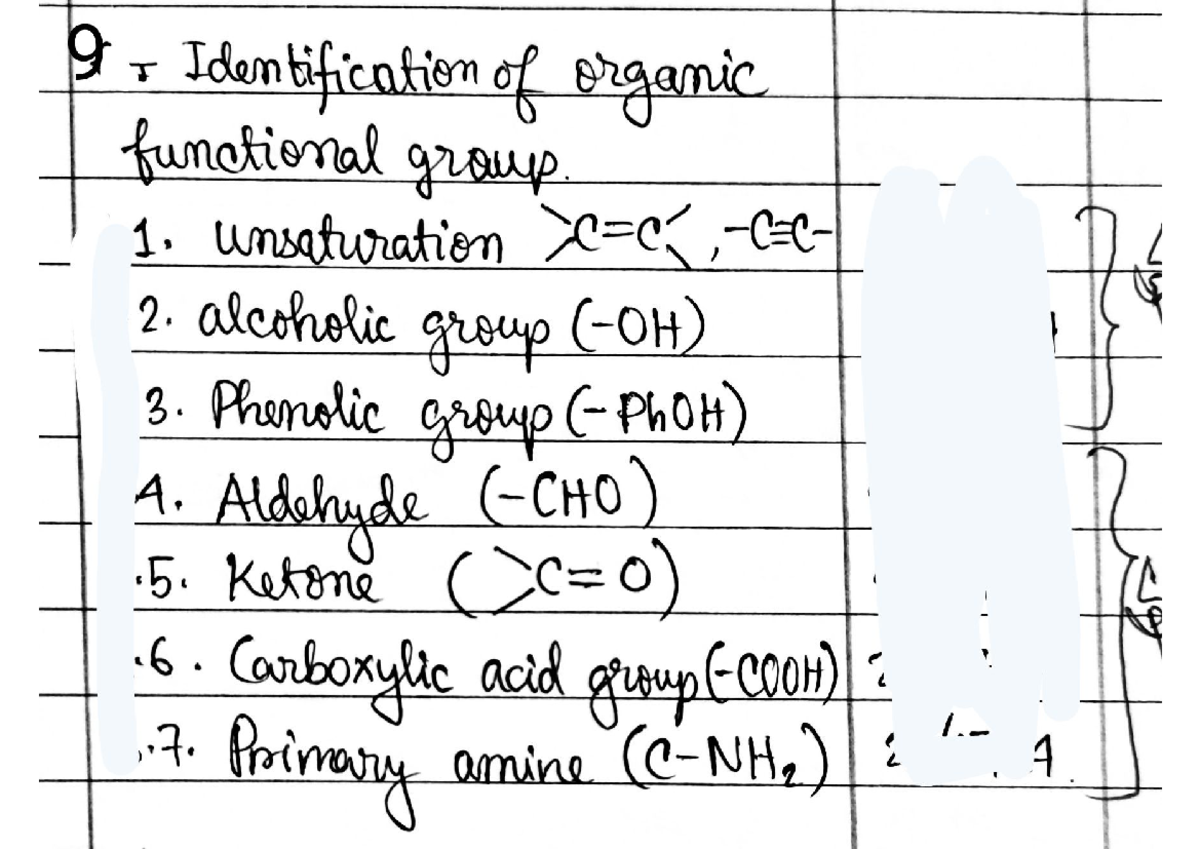 9. Identification of organic
functional group.
1. unsaturation >C=C<, -C≡C-
2. alcoholic group (-OH)
3. Phenolic group (-PhOH)
4. Aldehyde (-CHO)
5. Ketone (>C=O)
6. Carboxylic acid group (-COOH)
7. Primary amine (C-NH₂)